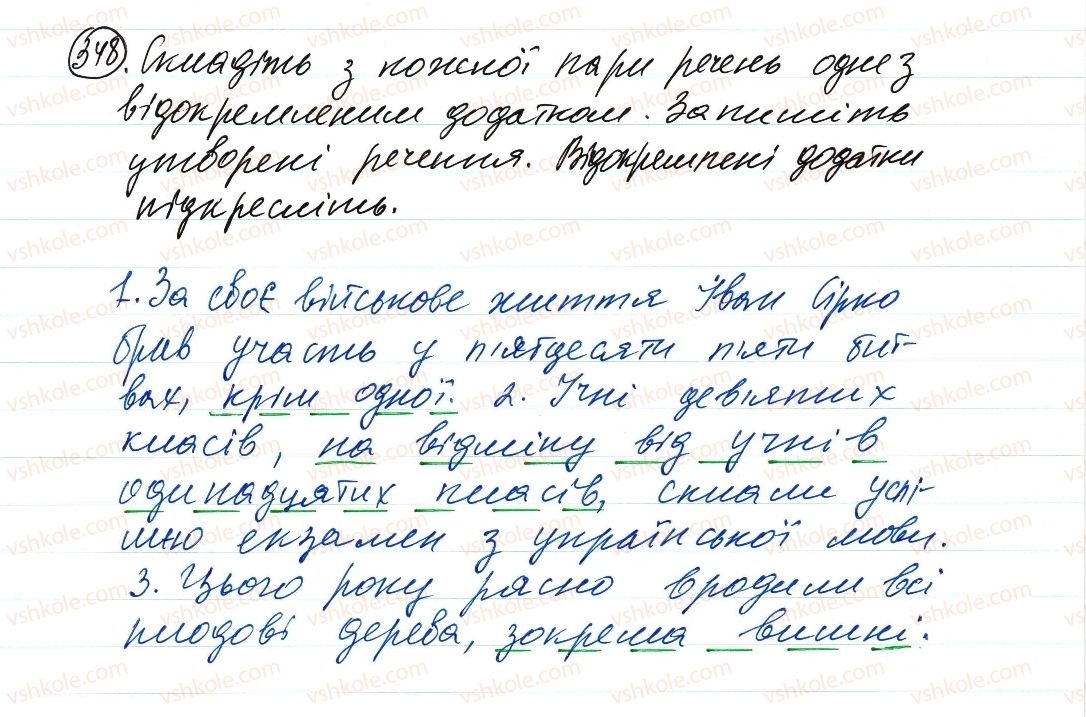 348. Складіть з кожної пари речень одне з
відокремленим додатком. Запишіть
утворені речення. Відокремлені додатки
підкресліть.
1. За своє військове життя Іван Сірко
брав участь у п'ятдесяти п'яти бит-
вах, крім одної. 2. Учні дев'ятих
класів, на відміну від учнів
одинадцятих класів, склали успі-
шно екзамен з української мови.
3. Цього року рясно вродили всі
плодові дерева, зокрема вишні.